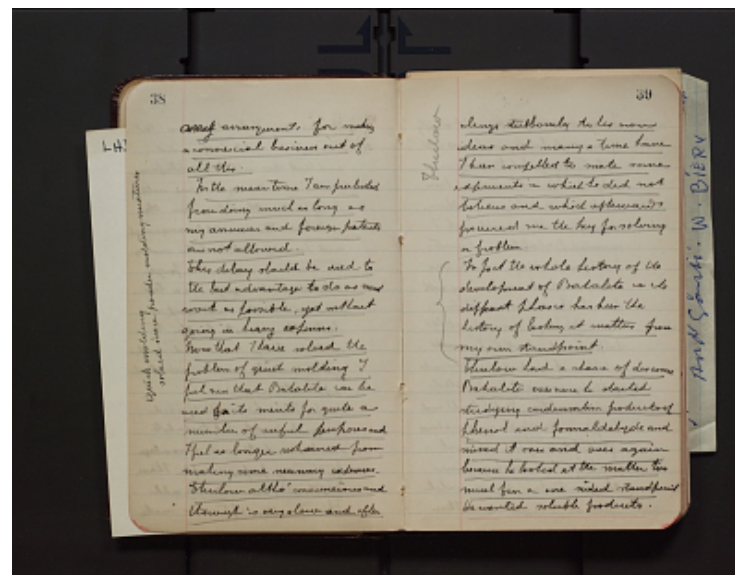 38
and arrangements for making
a commercial business out of
all this.
In the mean time I am precluded
from doing much as long as
my american and foreign patents
are not allowed.
This delay should be used to
the best advantage to do as much
work as possible, yet without
going in heavy expenses.
Now that I have solved the
problem of quick molding I
feel now that Bakalite can be
used for its merits for quite a
number of useful purposes and
I feel no longer
making some necessary expenses.
Thurlow altho' conscientious and
thorough is very slow and often
Quick molding
wood powder molding mixtures
LH
39
Thurlow
clings stubbornly to his own
ideas and many a time have
I been compelled to make some
experiments in which he did not
believe and which afterwards
procured me the key for solving
a problem.
In fact the whole history of the
development of Bakalite in its
different phases has been the
history of looking at matters from
my own standpoint.
Thurlow had a chance of discovering
Bakalite ever since he started
studying condensation products of
phenol and formaldehyde and
missed it over and over again
because he looked at the matter too
much from a one sided standpoint
He wanted soluble products.
W. BIERY